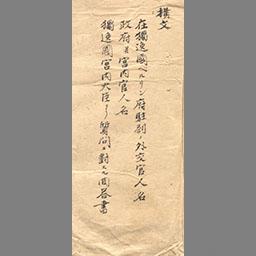 撰文
在獨逸國ベルリン府駐劄ノ外交官人名
政府並宮内官人名
獨逸國宮内大臣ヨリ質問ニ對スル回答書